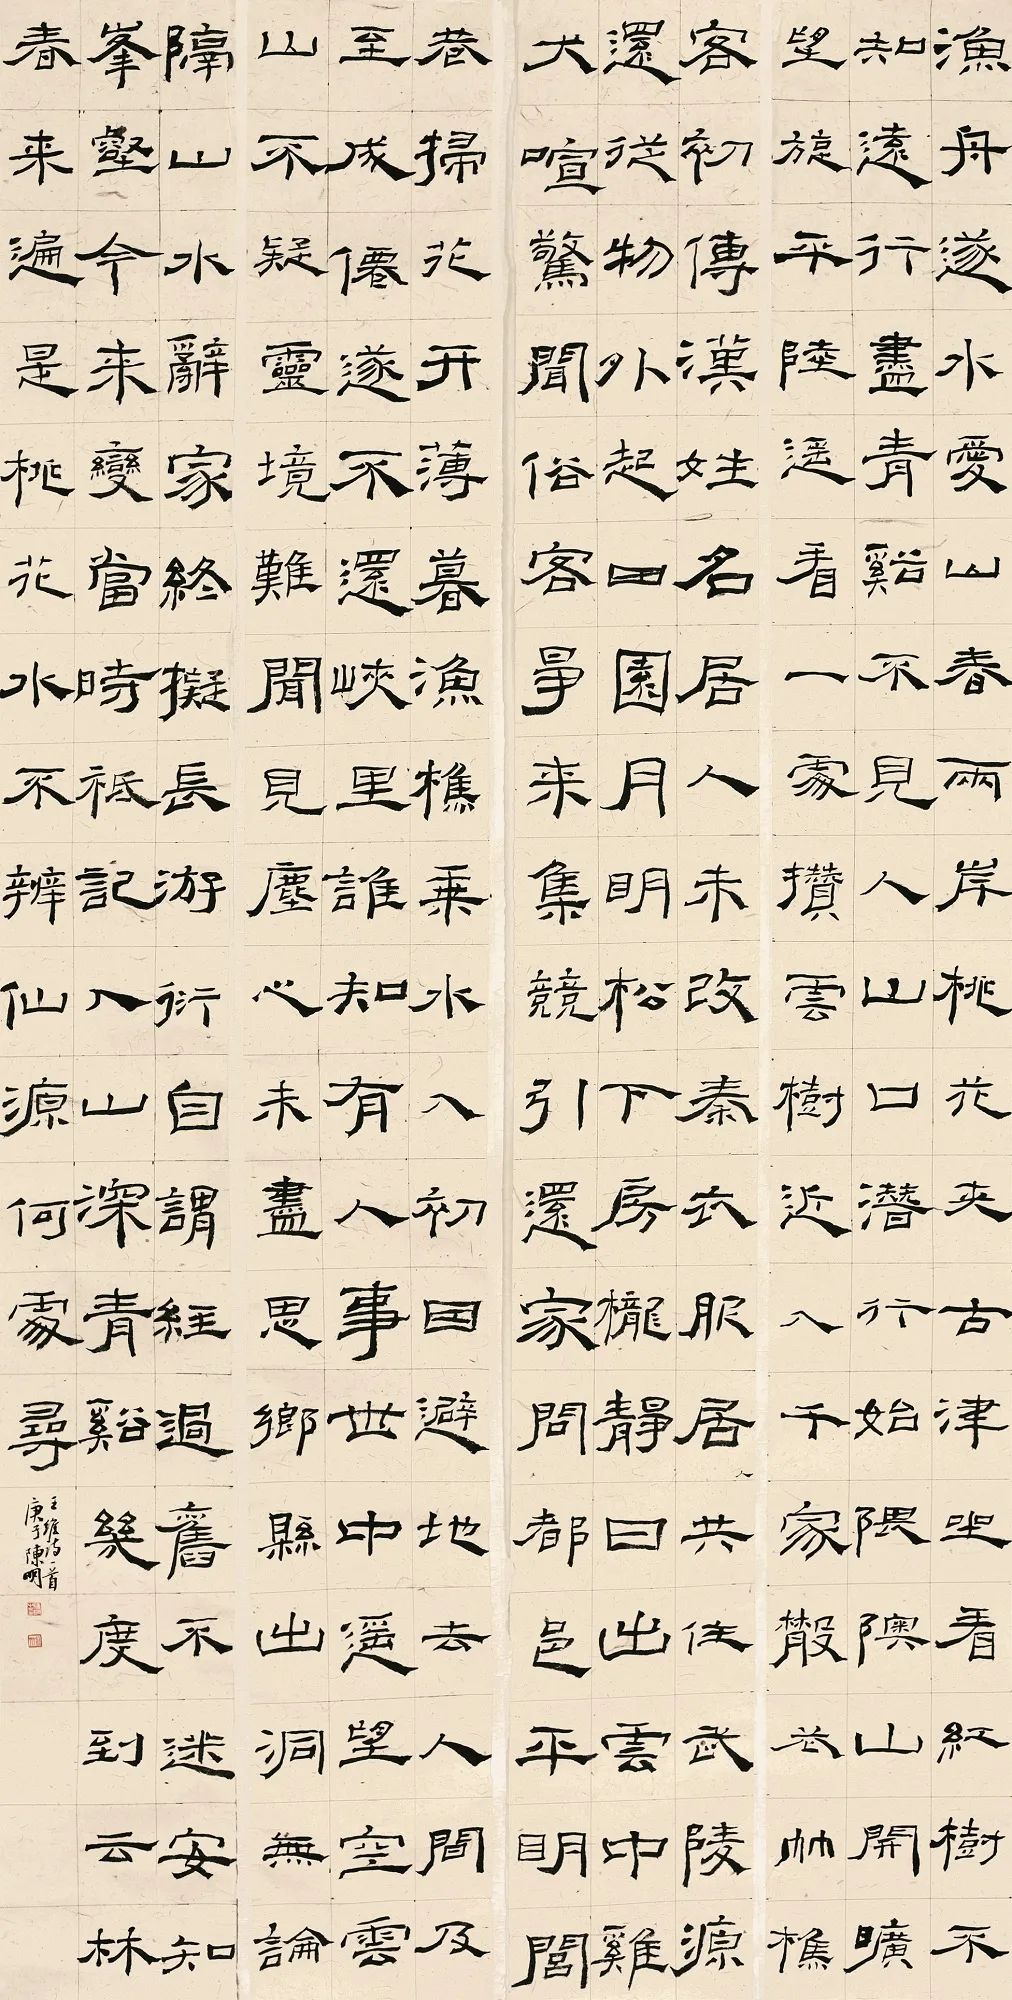 漁舟遂水愛山春兩岸桃花夾古津坐看紅樹不
知遠行盡青谿不見人山口潛行始隈隩山開曠
望旋平陸遥看一處攢雲樹近入千家散花竹樵
客初傳漢姓名居人未改秦衣服居人共住武陵源
還從物外起田園月明松下房櫳靜日出雲中雞
犬喧驚聞俗客爭来集競引還家問都邑平明閭
巷掃花開薄暮漁樵乘水入初因避地去人間及
至成僊遂不還峽里誰知有人事世中遥望空雲
山不疑靈境難聞見塵心未盡思鄉縣出洞無論
隔山水辭家終擬長游衍自謂經過舊不迷安知
峯壑今来變當時祗記入山深青谿幾度到云林
春来遍是桃花水不辨仙源何處尋
王維詩一首
庚子陳明